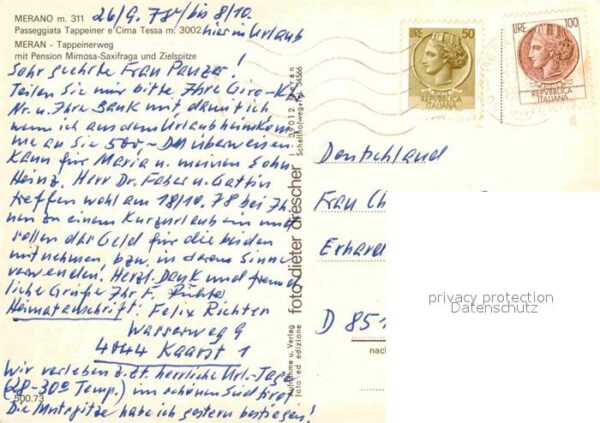 MERANO m. 311
Passeggiata Tappeiner e Cima Tessa m. 3002
MERAN - Tappeinerweg
mit Pension Mimosa-Saxifraga und Zielspitze
26/9. 78/bis 8/10.
hier in Urlaub
Sehr geehrte Frau Panzer!
Teilen Sie mir bitte Ihre Giro-K.
Nr. u. Ihre Bank mit damit ich
wenn ich aus dem Urlaub heimkom
me an Sie 500,- DM überweisen
kann für Maria u. meinen Sohn
Heinz. Herr Dr. Faber u. Gattin
treffen wohl am 18/10. 78 bei Ih
nen zu einem Kurzurlaub ein und
sollen das Geld für die beiden
mitnehmen bzw. in derem Sinne
verwenden! Herzl. Dank und freund
liche Grüße Ihr F. Richter
Heimatanschrift: Felix Richter
Wasserweg 9
4044 Kaarst 1
Wir verleben z.Zt. herrliche Url.-Tage
(28-30° Temp.) im schönen Südtirol
Die Mutspitze habe ich gestern bestiegen!
500.73
foto-dieter drescher
Aufnahme u. Verlag
foto ed edizione
39012 Meran
34566
LIRE 50
REPVBBLICA
ITALIANA
LIRE 100
REPVBBLICA
ITALIANA
Deutschland
Frau Ch
Erhard
D 851
nac
privacy protection
Datenschutz